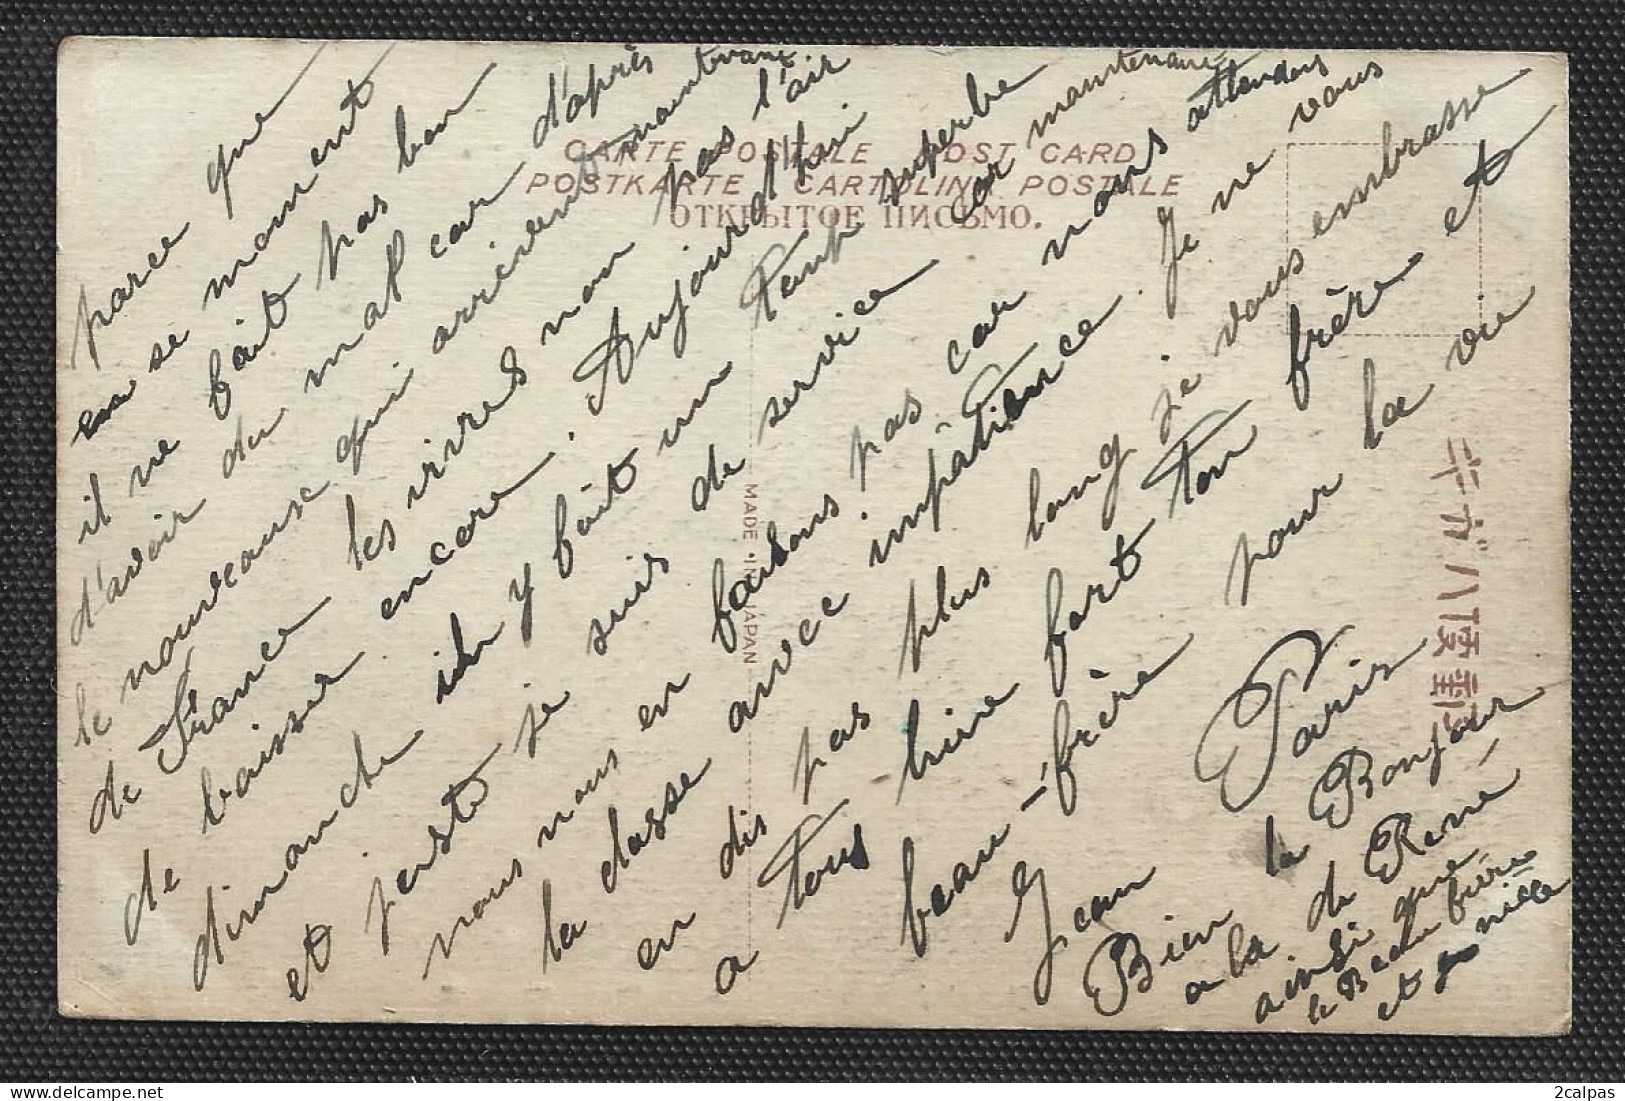 CARTE POSTALE POST CARD
POSTKARTE CARTOLINA POSTALE
ОТКРЫТОЕ ПИСЬМО.
MADE IN JAPAN
parce que
en se moment
il ne fait pas bon
d'avoir du mal car d'après
le nouveaux qui arrivent maintenant
de France les vivres non pas l'air
de baisser encore. Aujourd'hui
dimanche il y fait un temp superbe
et juste je suis de service car maintenant
nous nous en faisons pas car nous attendons
la classe avec impatience. Je ne vous
en dis pas plus long je vous embrasse
a tous bien fort ton frère et
beau-frère pour la vie
Jean Paris
Bien la Bonjour
a la de René
ainsi que
le Beau frère
et nièce